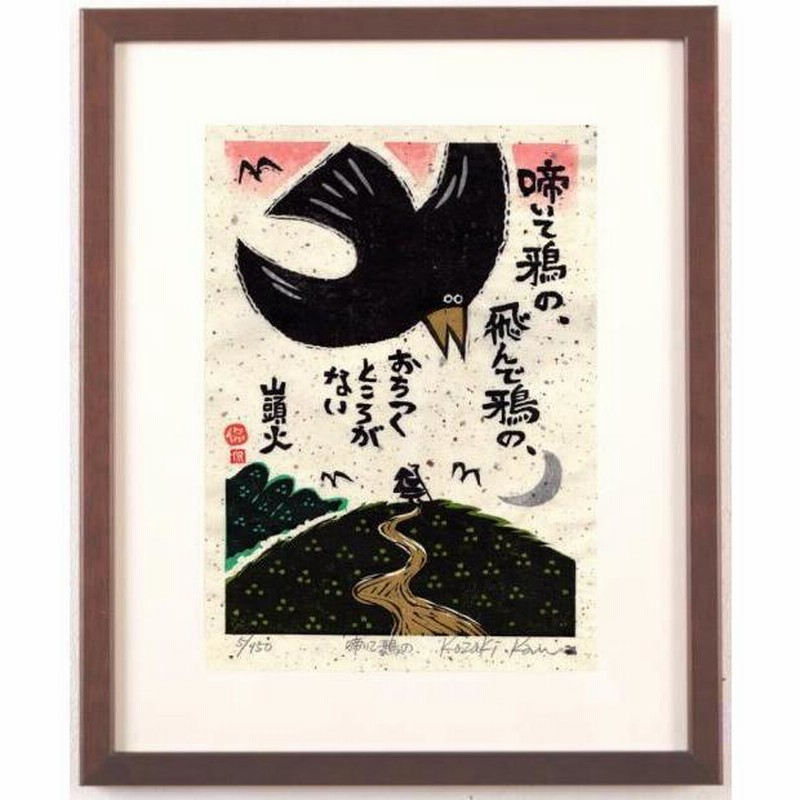 啼いて鴉の、
飛んで鴉の、
おちつく
ところが
ない
山頭火
5/450
啼いて鴉の、
Kozaki. Kan